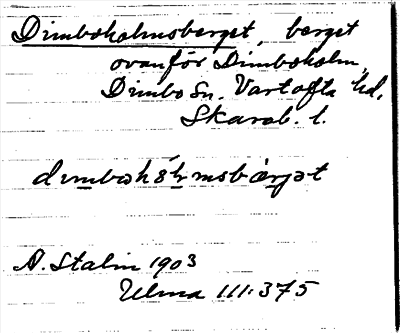 Dimboholmsberget, berget
ovanför Dimboholm,
Dimbo Sn. Vartofta hd.
Skarab. l.
A. Stalin 1903
Ulma 111:375